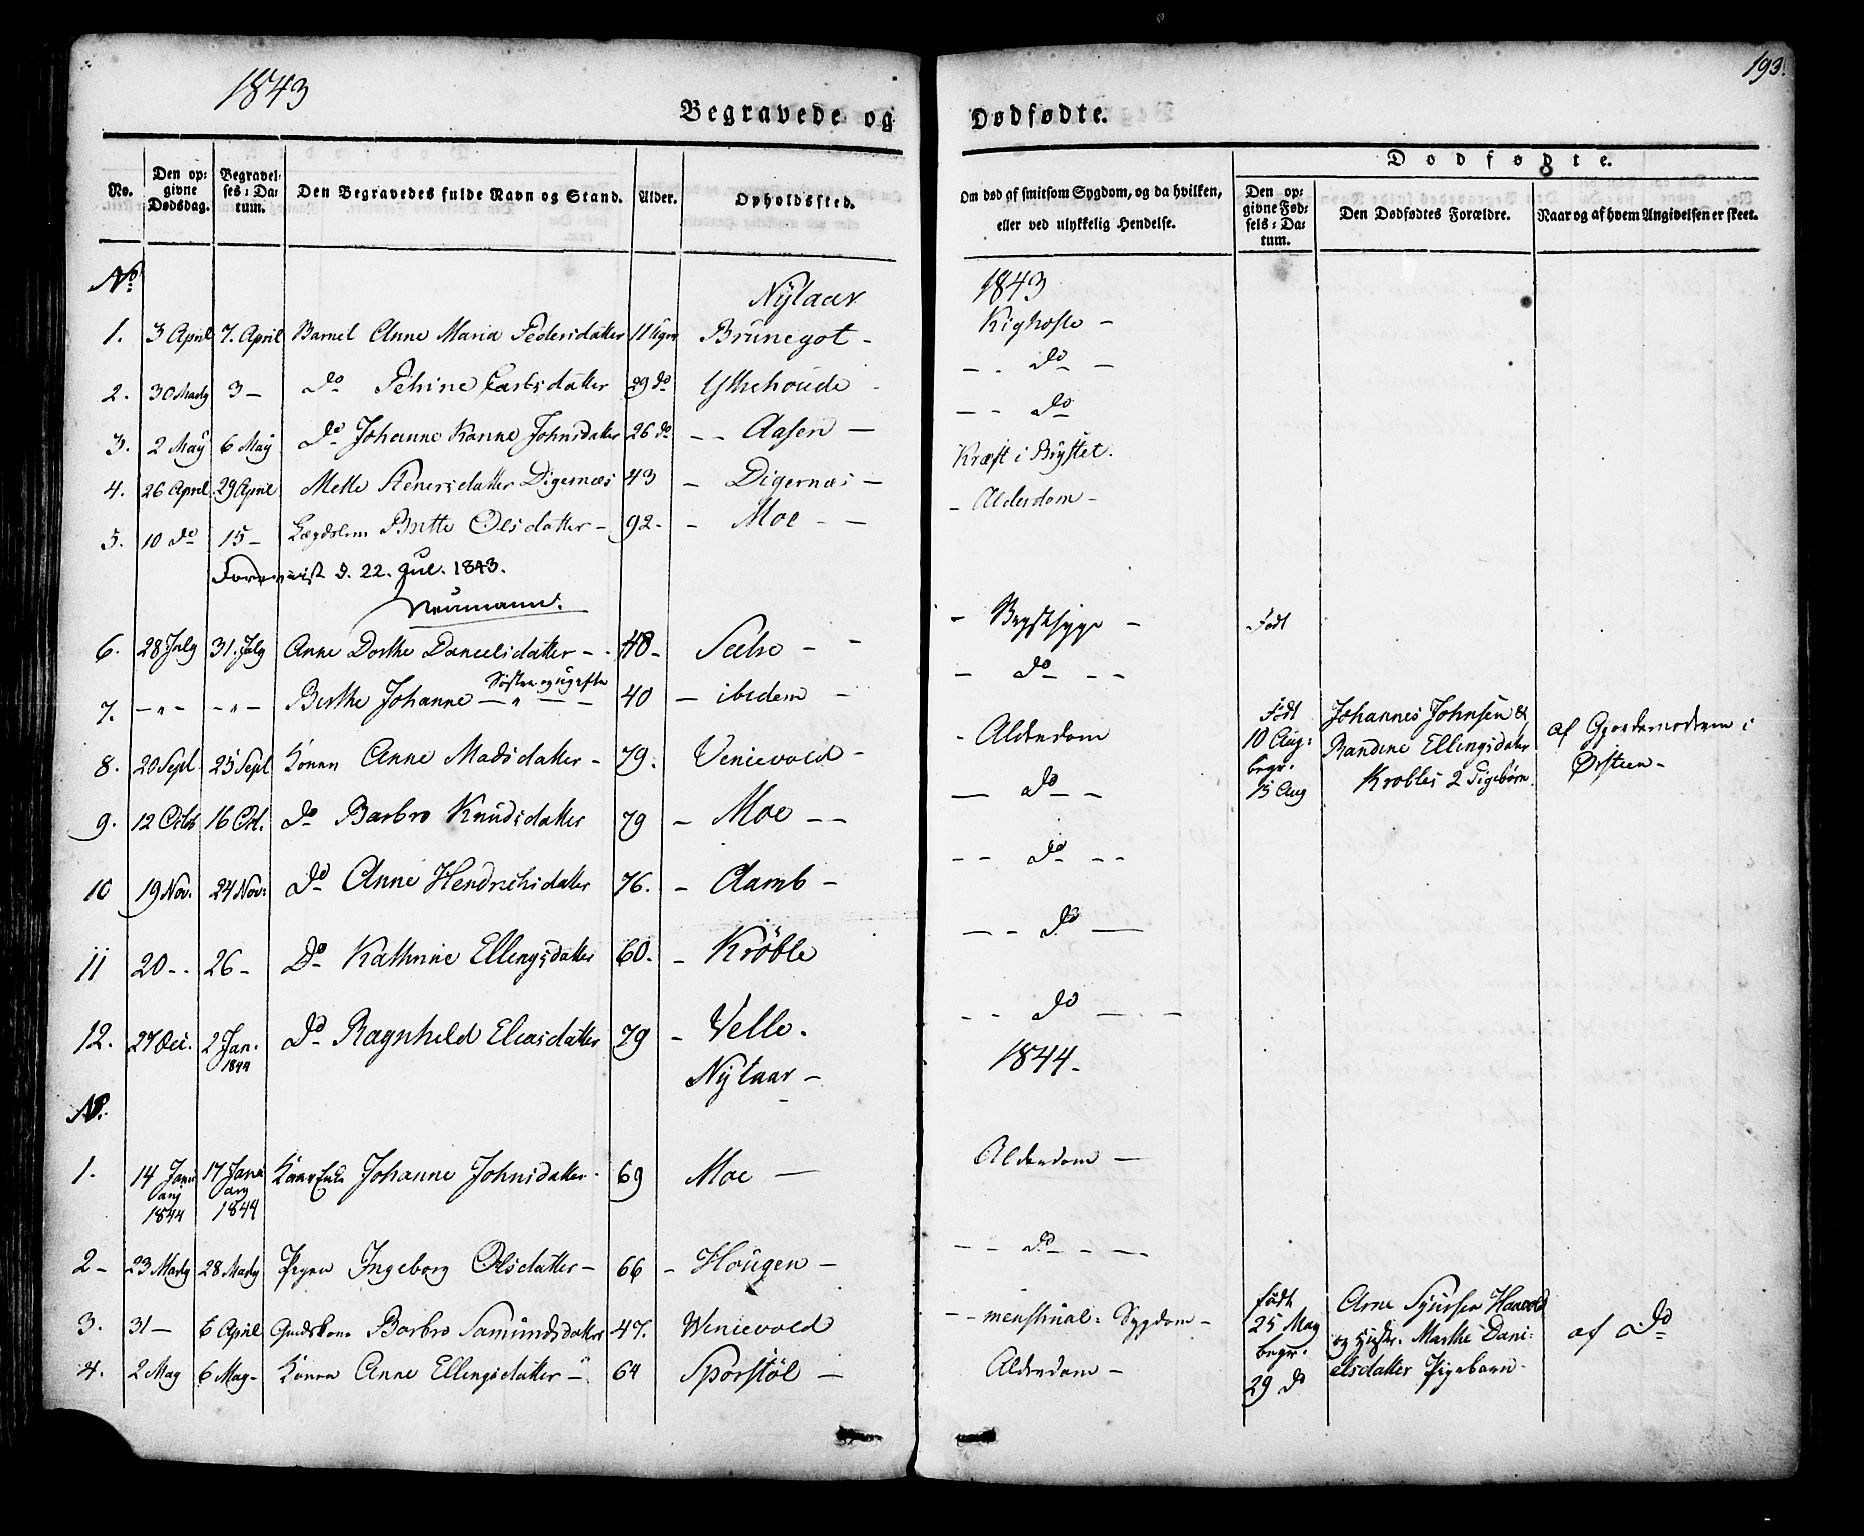 1843
193.
Begravede og Dødfødte.
No. Den opgivne Dødsdag. Begravelses-Datum. Den Begravedes fulde Navn og Stand. Alder. Opholdssted. Om død af smitsom Sygdom, og da hvilken, eller ved ulykkelig Hendelse. Dødfødte. Den opgivne Fødsels-Datum. Den Dødfødtes Forældre. Naar og af hvem Angivelsen er skeet.
No. Nÿtaar 1843
1. 3 April 7. April Barnet Anne Maria Pedersdatter 11 Uger Brünegot - Kighoste -
2. 30 Marty 3 - do Petrine Larsdatter 29 do Ytrehoude - - - do -
3. 2 Maÿ 6 Maÿ do Johanne Karine Johnsdatter 26 do - - Aasen - - - do
4. 26 April 29 April Mette Stenersdatter Digernæs 43 - Digernæs - Kræft i Brÿstet.
5. 10 do 15 - Lægdslem Britte Olsdatter - 92 - - Moe - - - Alderdom -
Foreviist d. 22. Jul. 1843.
Neumann.
6. 28 July 31. July Anne Dorthe Danielsdatter - 48 - Sætre - - Brystsyge - Født
7. - " - - " - Berthe Johanne - " - Søster og ugifte 40 - ibidem - - do - -
8. 20 Sept 25 Sept Konen Anne Madsdatter - 79. Veniewold - - Alderdom Født 10 Aug: begr. 15 Aug Johannes Johnsen & Randine Ellingsdatter Krobles 2 Pigebørn. af Gjordemoderen i Ørsteen -
9. 12 Octbr 16 Oct. do Barbro Knudsdatter 79 - Moe - - - do -
10 19 Nov. 24 Nov: do Anne Hendrichsdatter 76. - Aamb - - - do - -
11 20 - - 26 - do Kathrine Ellingsdatter 60. - Krøble - - do -
12. 27 Dec. 2 Jan. 1844 do Ragnhild Eliasdatter 79 - Velle. - - do - -
No. Nÿtaar - 1844 -
1. 14 Januarij 1844 17 Januarij 1844 Johanne Johnsdatter - 69 Moe - Alderdom -
2 - 23 Marty 28 Marty Ingeborg Olsdatter - 66 - Hougen - - - do - - -
3. 31 - 6 April Barbro Samündsdatter 47. Weniewold - - menstrual: Sygdom - Født 25 May begr. 29 do Arne Sjursen Hanvold og Hustr. Marthe Danielsdatter Pigebarn - af do
4. 2 May 6 May - Konen Anne Ellingsdatter - 64 Sporstöl - Alderdom -